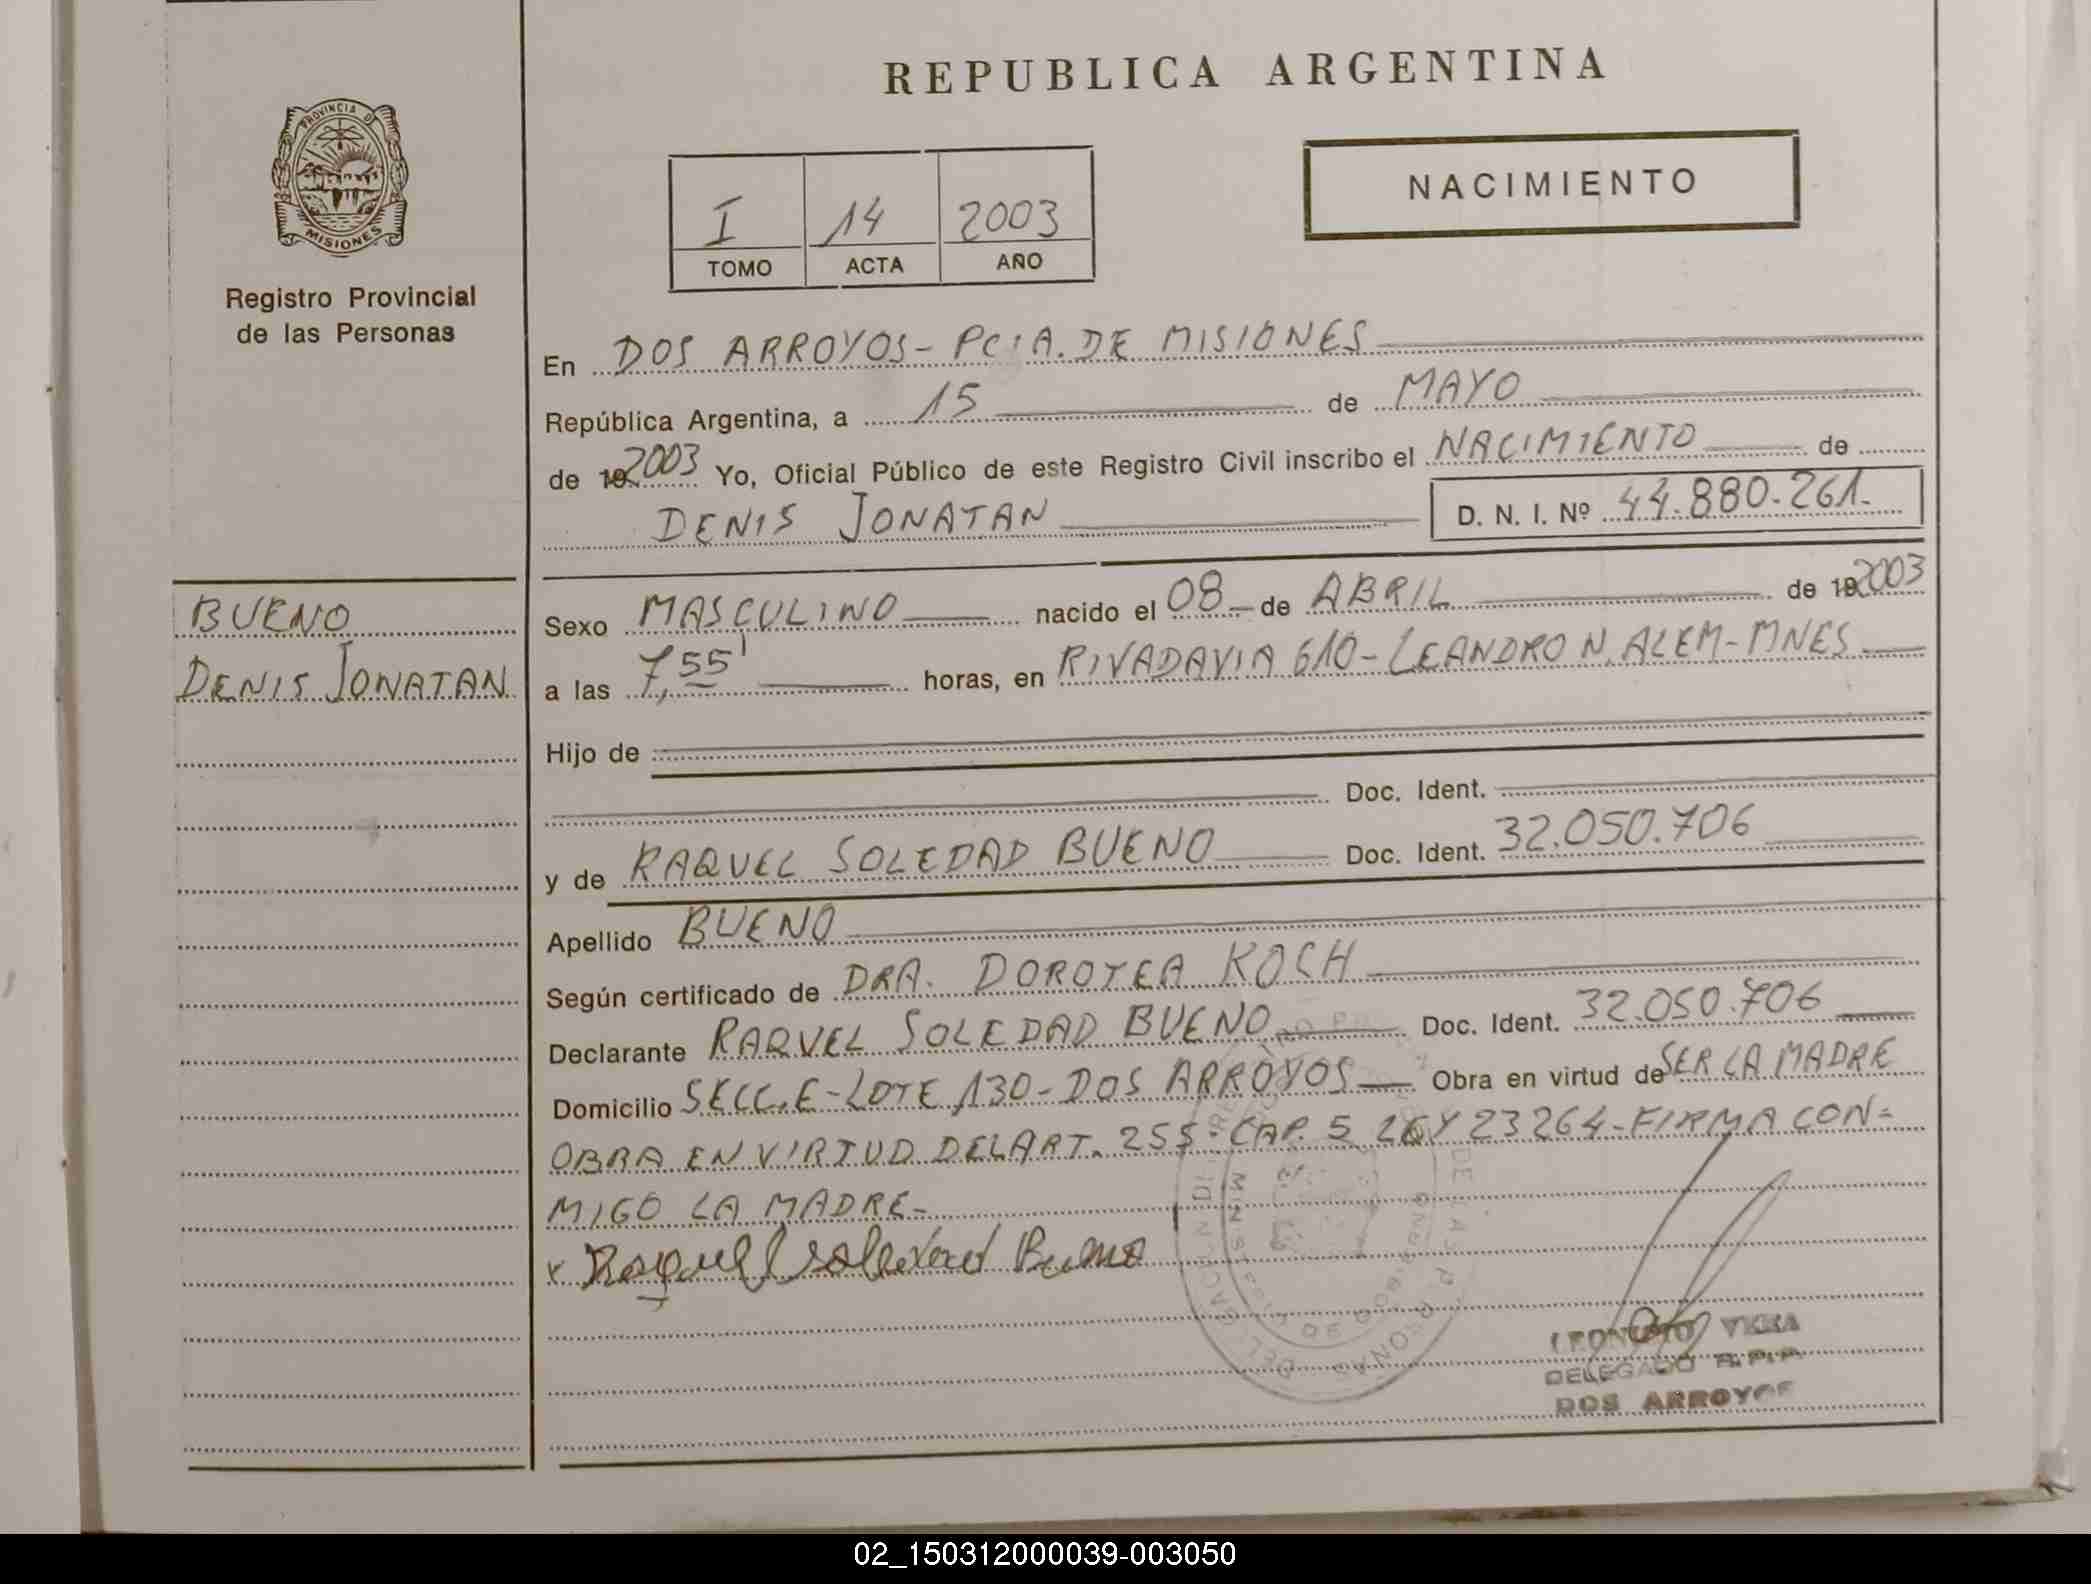 REPUBLICA ARGENTINA
PROVINCIA D
MISIONES
Registro Provincial
de las Personas
I 14 2003
TOMO ACTA AÑO
NACIMIENTO
En DOS ARROYOS - PCIA. DE MISIONES
República Argentina, a 15 de MAYO
de 192003 Yo, Oficial Público de este Registro Civil inscribo el NACIMIENTO de
DENIS JONATAN D. N. I. Nº 44.880.261.
BUENO
DENIS JONATAN
Sexo MASCULINO nacido el 08 de ABRIL de 192003
a las 7,55' horas, en RIVADAVIA 610 - LEANDRO N. ALEM - MNES
Hijo de
Doc. Ident.
y de RAQUEL SOLEDAD BUENO Doc. Ident. 32.050.706
Apellido BUENO
Según certificado de DRA. DOROTEA KOCH
Declarante RAQUEL SOLEDAD BUENO Doc. Ident. 32.050.706
Domicilio SECC. E - LOTE 130 - DOS ARROYOS Obra en virtud de SER LA MADRE
OBRA EN VIRTUD DEL ART. 255 - CAP. 5 Y 23264 - FIRMA CON=
MIGO LA MADRE -
x Raquel Soledad Bueno
VERA
DELEGADO R.P.P.
DOS ARROYOS
02_150312000039-003050